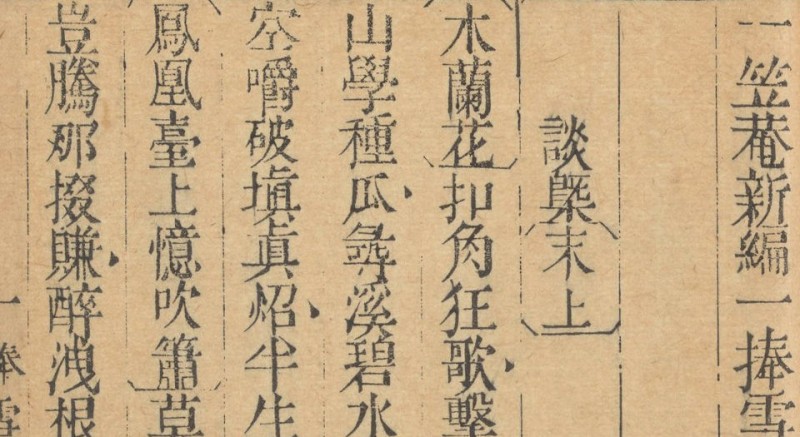 一笠菴新編一捧雪
談槩末上
木蘭花扣角狂歌擊
山學種瓜尋溪碧水
空嚼破塡眞炤半生
鳳凰臺上憶吹簫草
豈騰那掇賺醉洩根
一捧雪